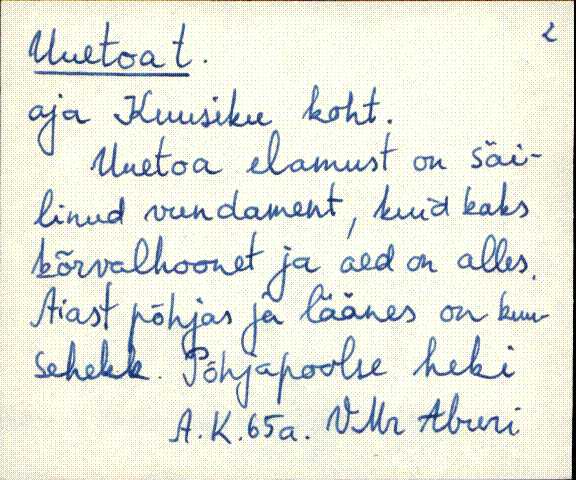 2
Uuetoa t.
aja Kuusiku koht.
Uuetoa elamust on säi-
linud vundament, kuid kaks
kõrvalhoonet ja aed on alles.
Aiast põhjas ja läänes on kuu-
sehekk. Põhjapoolse heki
A.K. 65a. VMr Aburi